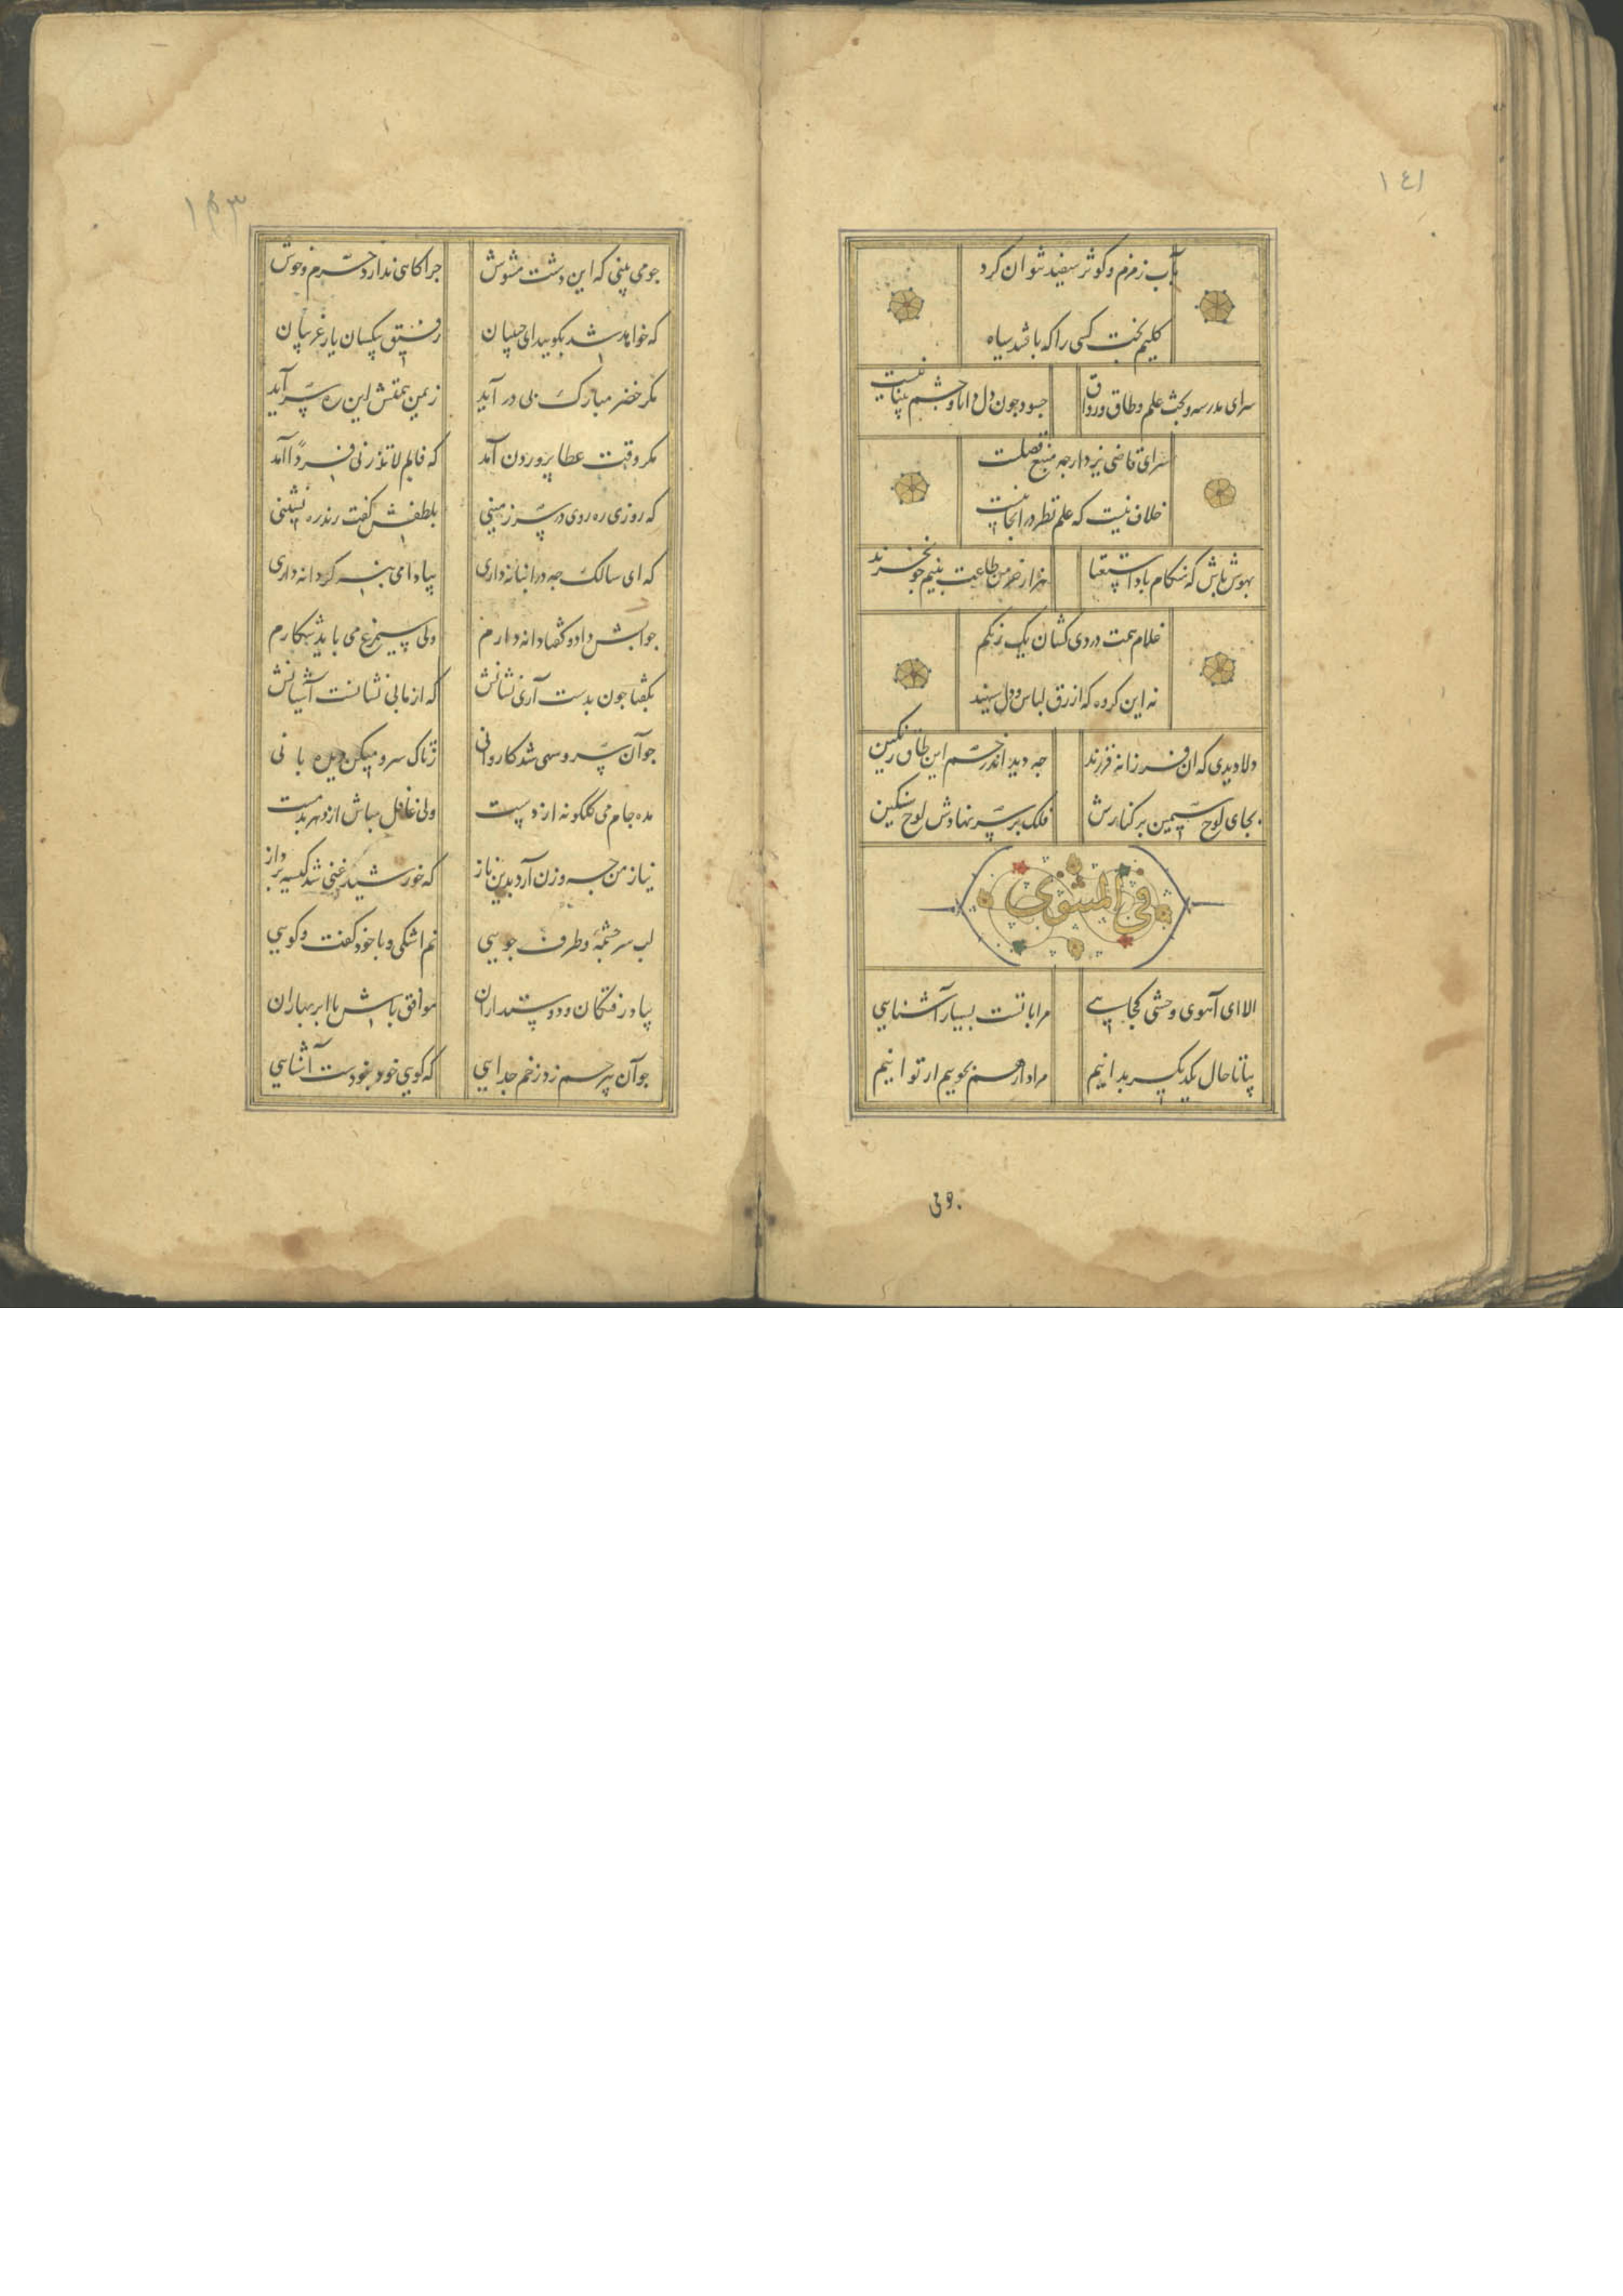 ١٤١
بآب زمزم و کوثر سفید نتوان کرد
کلیم بخت کسی را که باشد سیاه
سرای مدرسه و بحث علم و طاق و رواق
جسود جون دل دانا و جشم بینا نیست
سرای قاضی یزد ارجه منبع فضلست
خلاف نیست که علم نظر در انجا نیست
بهوش باش که هنکام باد استغنا
هزار خرمن طاعت بنیم جو نخرند
غلام همت دردی کشان یک رنکم
نه این کروه که ازرق لباس و دل سیهند
دلا دیدی که آن فرزانه فرزند
جه دید اندر خم این طاق رنکین
بجای لوح سیمین بر کنارش
فلک بر سر نهادش لوح سنکین
فی المثنوی
الا ای آهوی وحشی کجایی
مرا با تست بسیار آشنایی
بیا تا حال یکدیکر بدانیم
مراد از هم بجوییم ار توانیم
جو می بینی که این دشت مشوش
جراکاهی ندارد خرم و خوش
که خواهد شد بکویید ای حبیبان
رفیق بیکسان یار غریبان
مکر خضر مبارک پی در آید
زیمن همتش این ره سر آید
مکر وقت عطا پروردن آمد
که فالم لا تذرنی فردا آمد
که روزی ره روی در سرزمینی
بلطفش کفت رند ره نشینی
که ای سالک جه در انبانه داری
بیا دامی بنه کر دانه داری
جوابش داد و کفتا دانه دارم
ولی سیمرغ می باید شکارم
بکفتا جون بدست آری نشانش
که از ما بی نشانست آشیانش
جو آن سرو سهی شد کاروانی
ز تاک سرو میکن دیده بانی
مده جام می کلکونه از دست
ولی غافل مباش از دهر بدمست
نیاز من جه وزن آرد بدین ناز
که خورشید غنی شد کیسه پرداز
لب سرجشمه و طرف جویی
نم اشکی و با خود کفت و کویی
بیاد رفتکان و دوستداران
موافق باش با ابر بهاران
جو آن بیرحم زد زخم جدایی
که کویی خود نبودست آشنایی